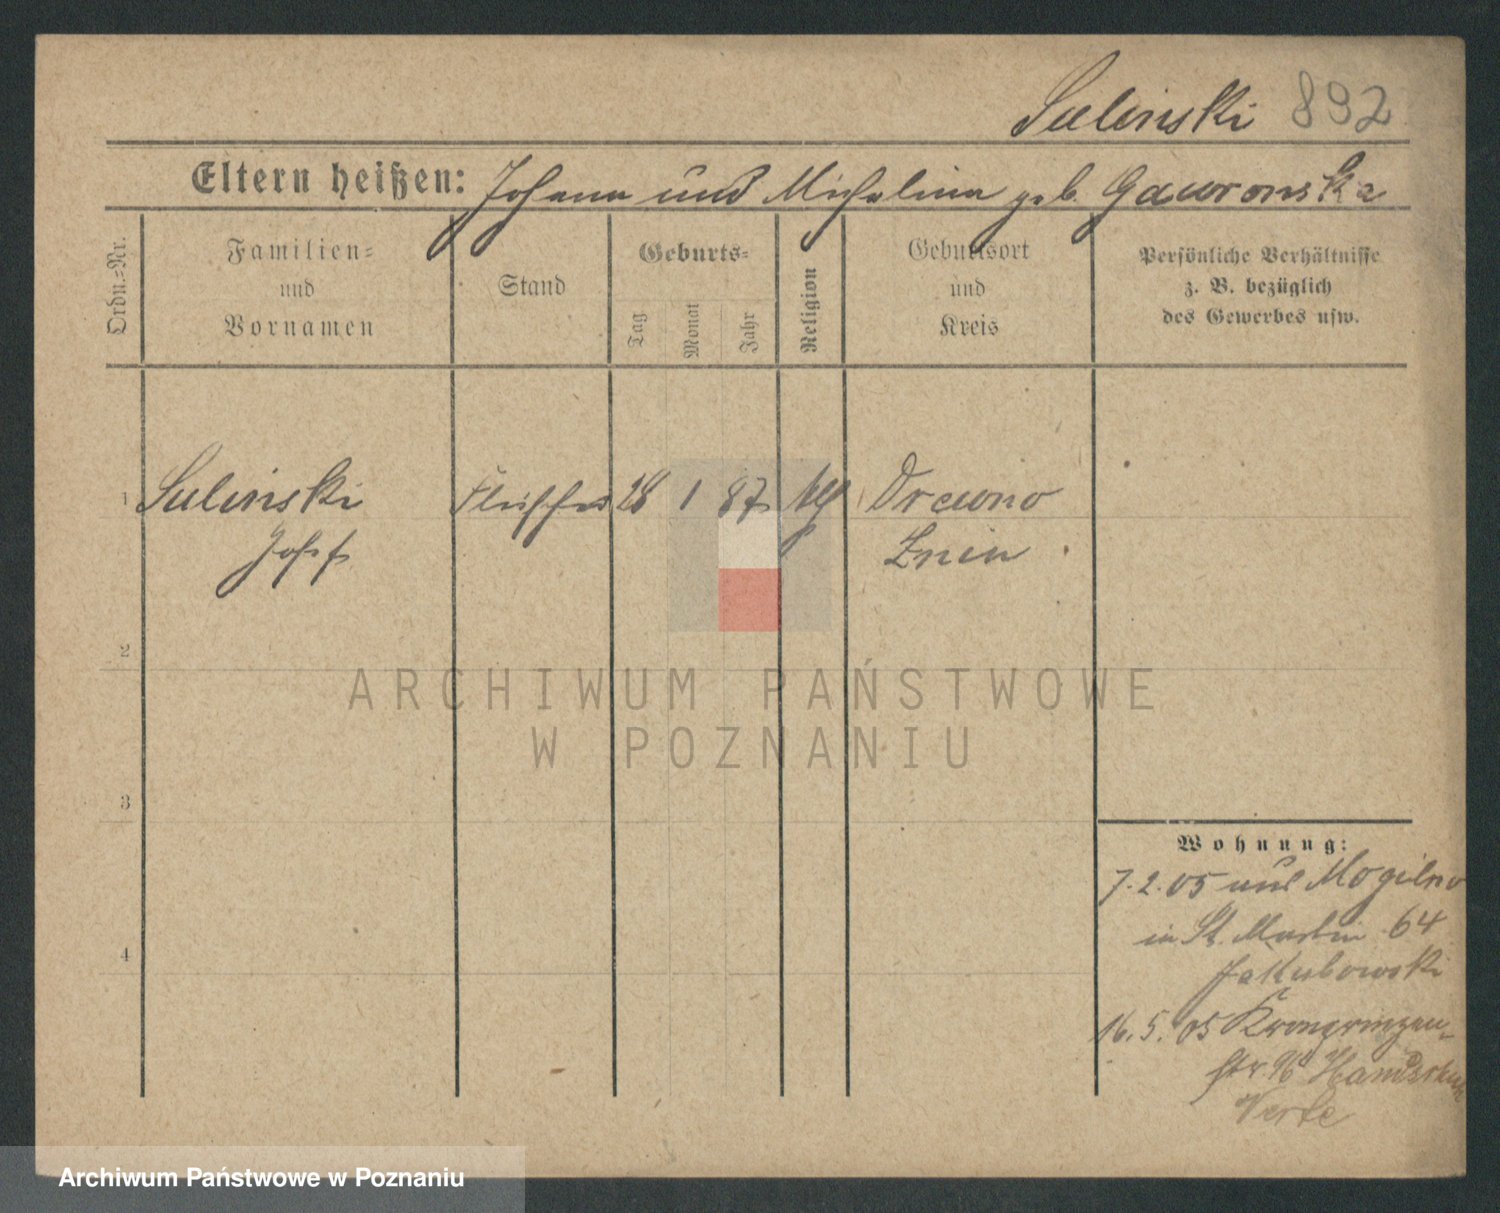 Sulinski 892
Eltern heißen: Johann und Michalina geb. Gawronska
Ordn.=Nr.
Familien=
und
Vornamen
Stand
Geburts=
Tag
Monat
Jahr
Religion
Geburtsort
und
Kreis
Persönliche Verhältnisse
z. B. bezüglich
des Gewerbes usw.
1 Sulinski Fleischer 28 1 87 Drewno
Josef Znin
2
ARCHIWUM PAŃSTWOWE
W POZNANIU
3
4
Wohnung:
7.2.05 aus Mogilno
in St. Martin 64
Jakubowski
16.5.05 Kronprinzen-
str 96
Archiwum Państwowe w Poznaniu